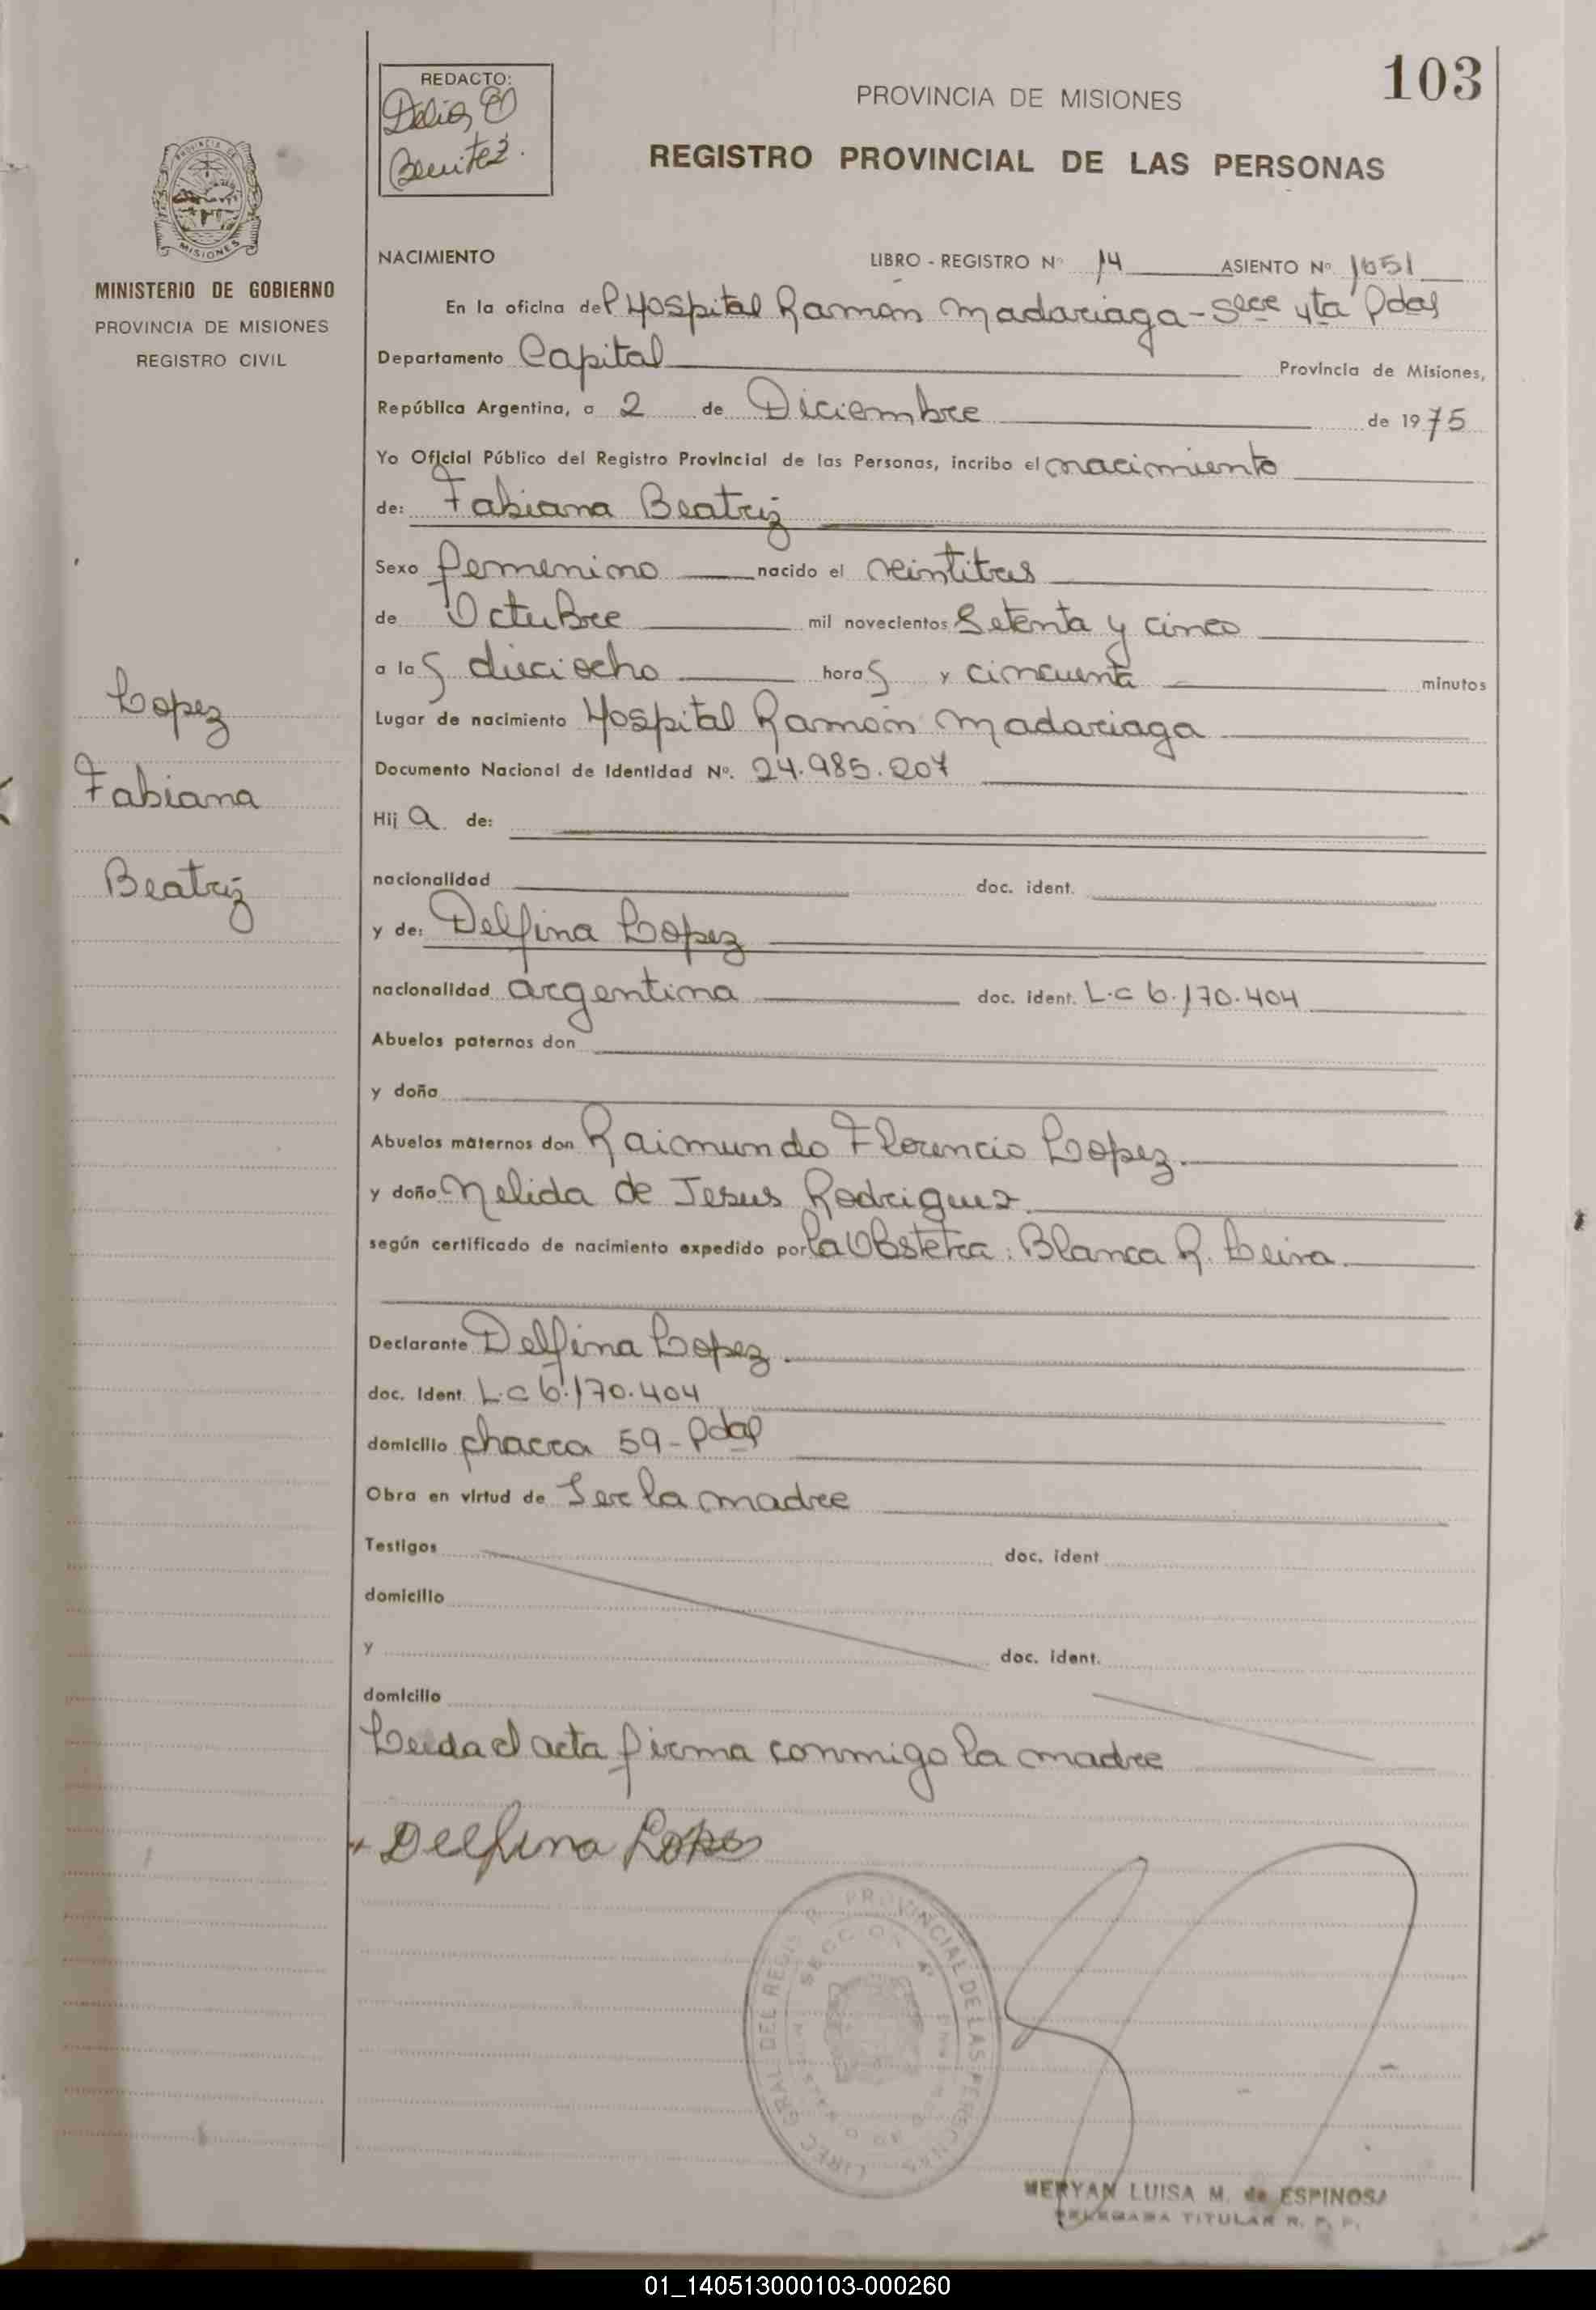 103
REDACTO:
Delia
Benitez.
PROVINCIA DE MISIONES
REGISTRO PROVINCIAL DE LAS PERSONAS
MISIONES
MINISTERIO DE GOBIERNO
PROVINCIA DE MISIONES
REGISTRO CIVIL
NACIMIENTO LIBRO - REGISTRO Nº 14 ASIENTO Nº 1051
En la oficina del Hospital Ramón Madariaga - Secc 4ta Pdas
Departamento Capital Provincia de Misiones,
República Argentina, a 2 de Diciembre de 1975
Yo Oficial Público del Registro Provincial de las Personas, incribo el nacimiento
de: Fabiana Beatriz
Sexo femenino nacido el veintitres
de Octubre mil novecientos Setenta y cinco
a las dieciocho horas y cincuenta minutos
Lugar de nacimiento Hospital Ramón Madariaga
Documento Nacional de Identidad Nº. 24.985.207
Hij a de:
nacionalidad doc. ident.
y de: Delfina Lopez
nacionalidad argentina doc. ident. L.C 6.170.404
Abuelos paternos don
y doña
Abuelos maternos don Raimundo Florencio Lopez.
y doña Nelida de Jesus Rodriguez
según certificado de nacimiento expedido por la Obstetra: Blanca R. Leiva.
Declarante Delfina Lopez.
doc. Ident. L.C 6.170.404
domicilio chacra 59 - Pdas
Obra en virtud de Ser la madre
Testigos doc. ident
domicilio
y doc. ident.
domicilio
Leida el acta firma conmigo la madre
Delfina Lopes
Lopez
Fabiana
Beatriz
PROVINCIAL DE LAS PERSONAS
GRAL DEL REGIS
SECC
MERYAN LUISA M. de ESPINOSA
DELEGADA TITULAR R. P. P.
01_140513000103-000260